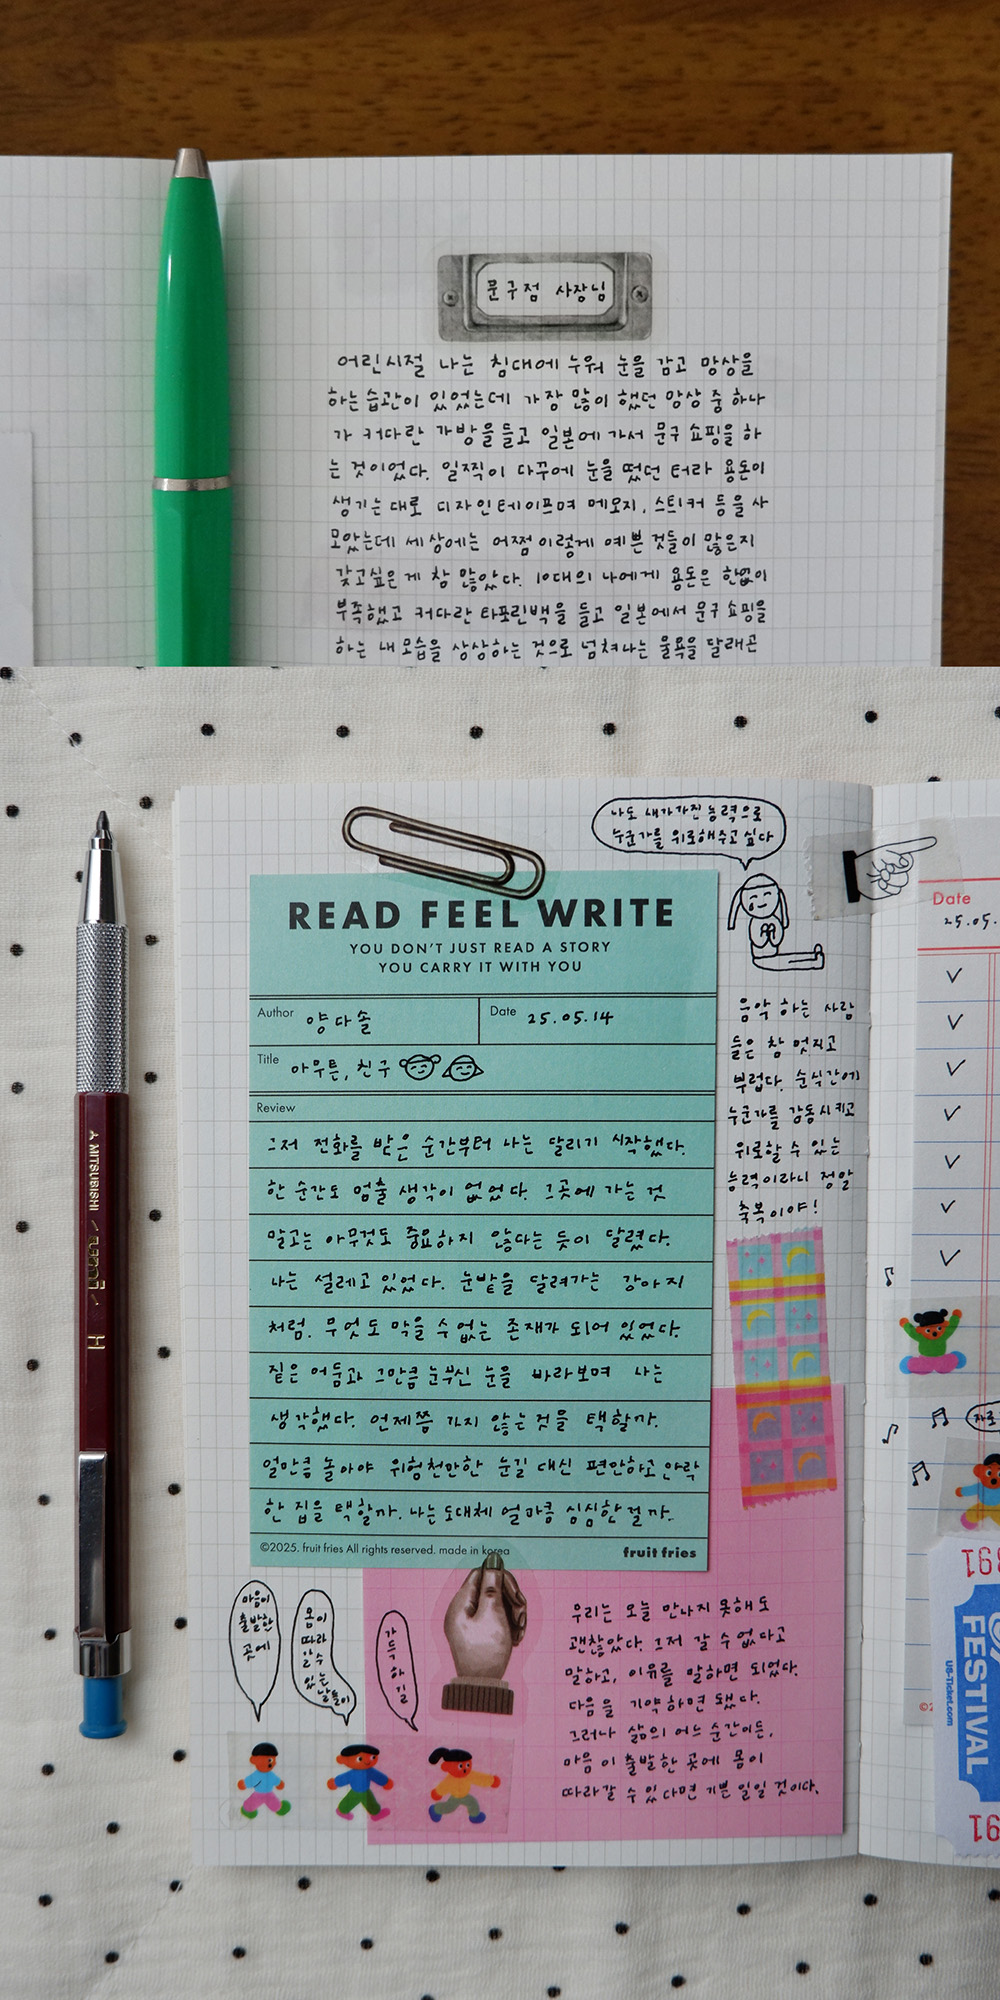 문구점 사장님
어린시절 나는 침대에 누워 눈을 감고 망상을
하는 습관이 있었는데 가장 많이 했던 망상 중 하나
가 커다란 가방을 들고 일본에 가서 문구 쇼핑을 하
는 것이었다. 일찍이 다꾸에 눈을 떴던 터라 용돈이
생기는 대로 디자인테이프며 메모지, 스티커 등을 사
모았는데 세상에는 어쩜 이렇게 예쁜 것들이 많은지
갖고싶은 게 참 많았다. 10대의 나에게 용돈은 한없이
부족했고 커다란 타포린백을 들고 일본에서 문구 쇼핑을
하는 내 모습을 상상하는 것으로 넘쳐나는 물욕을 달래곤
나도 내가가진 능력으로
누군가를 위로해주고 싶다
READ FEEL WRITE
YOU DON'T JUST READ A STORY
YOU CARRY IT WITH YOU
Author 양다솔
Date 25.05.14
Title 아무튼, 친구
Review
그저 전화를 받은 순간부터 나는 달리기 시작했다.
한 순간도 멈출 생각이 없었다. 그곳에 가는 것
말고는 아무것도 중요하지 않다는 듯이 달렸다.
나는 설레고 있었다. 눈밭을 달려가는 강아지
처럼. 무엇도 막을 수 없는 존재가 되어 있었다.
짙은 어둠과 그만큼 눈부신 눈을 바라보며 나는
생각했다. 언제쯤 가지 않는 것을 택할까.
얼만큼 놀아야 위험천만한 눈길 대신 편안하고 안락
한 집을 택할까. 나는 도대체 얼마큼 심심한 걸까.
©2025. fruit fries All rights reserved. made in korea
fruit fries
음악 하는 사람
들은 참 멋지고
부럽다. 순식간에
누군가를 감동시키고
위로할 수 있는
능력이라니 정말
축복이야!
Date
25.05.
마음이
출발한
곳에
몸이
따라
갈 수
있는
날들이
가득하길
우리는 오늘 만나지 못해도
괜찮았다. 그저 갈 수 없다고
말하고, 이유를 말하면 되었다.
다음을 기약하면 됐다.
그러나 삶의 어느 순간이든,
마음이 출발한 곳에 몸이
따라갈 수 있다면 기쁜 일일 것이다.
MITSUBISHI
H
FESTIVAL
US-Ticket.com